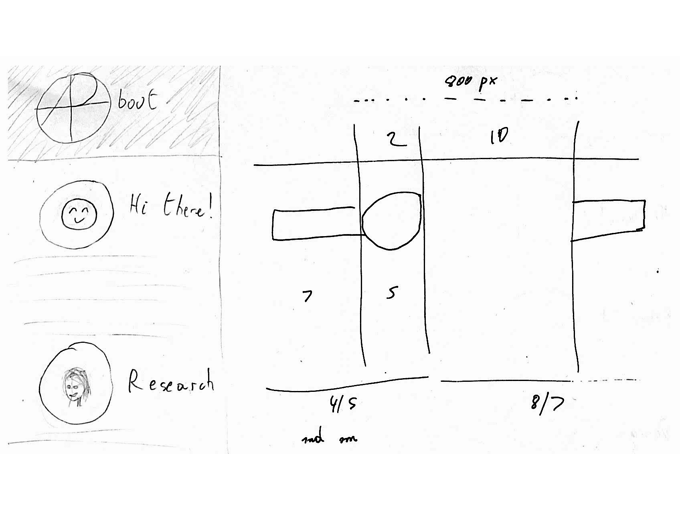 About
Hi there!
Research
800 px
2 10
7 5
4/5 8/7
md sm